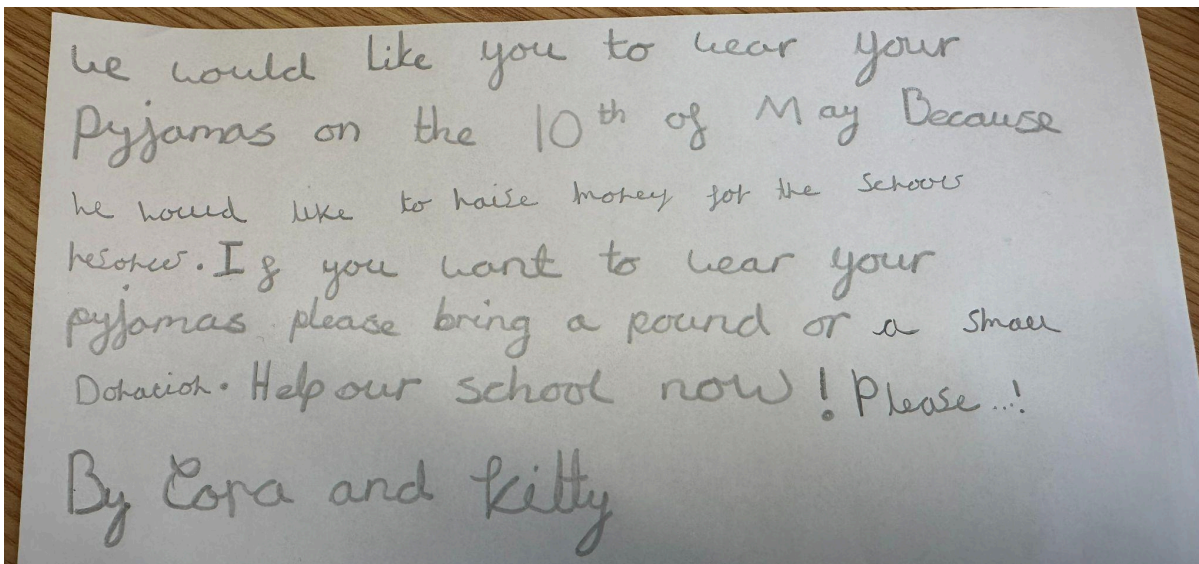 we would like you to wear your
Pyjamas on the 10th of May Because
we would like to raise money for the schools
resorces. If you want to wear your
pyjamas please bring a pound or a small
Donation. Help our school now! Please...!
By Cora and Kitty